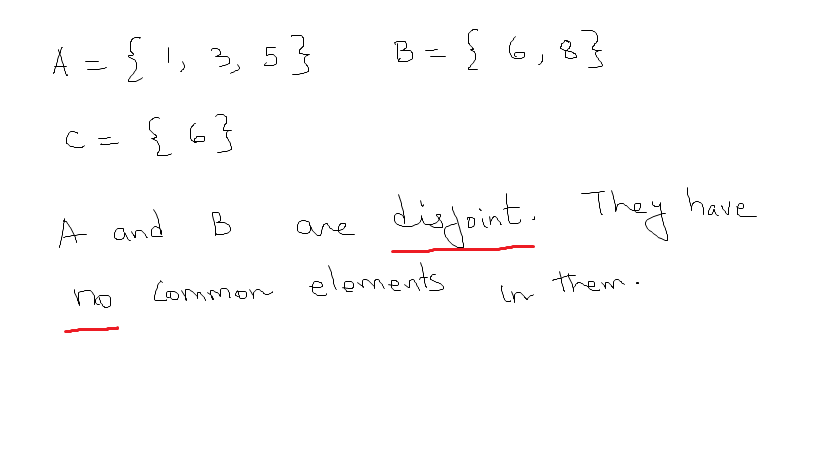 A = { 1, 3, 5 } B = { 6, 8 }
C = { 6 }
A and B are disjoint. They have
no common elements in them.